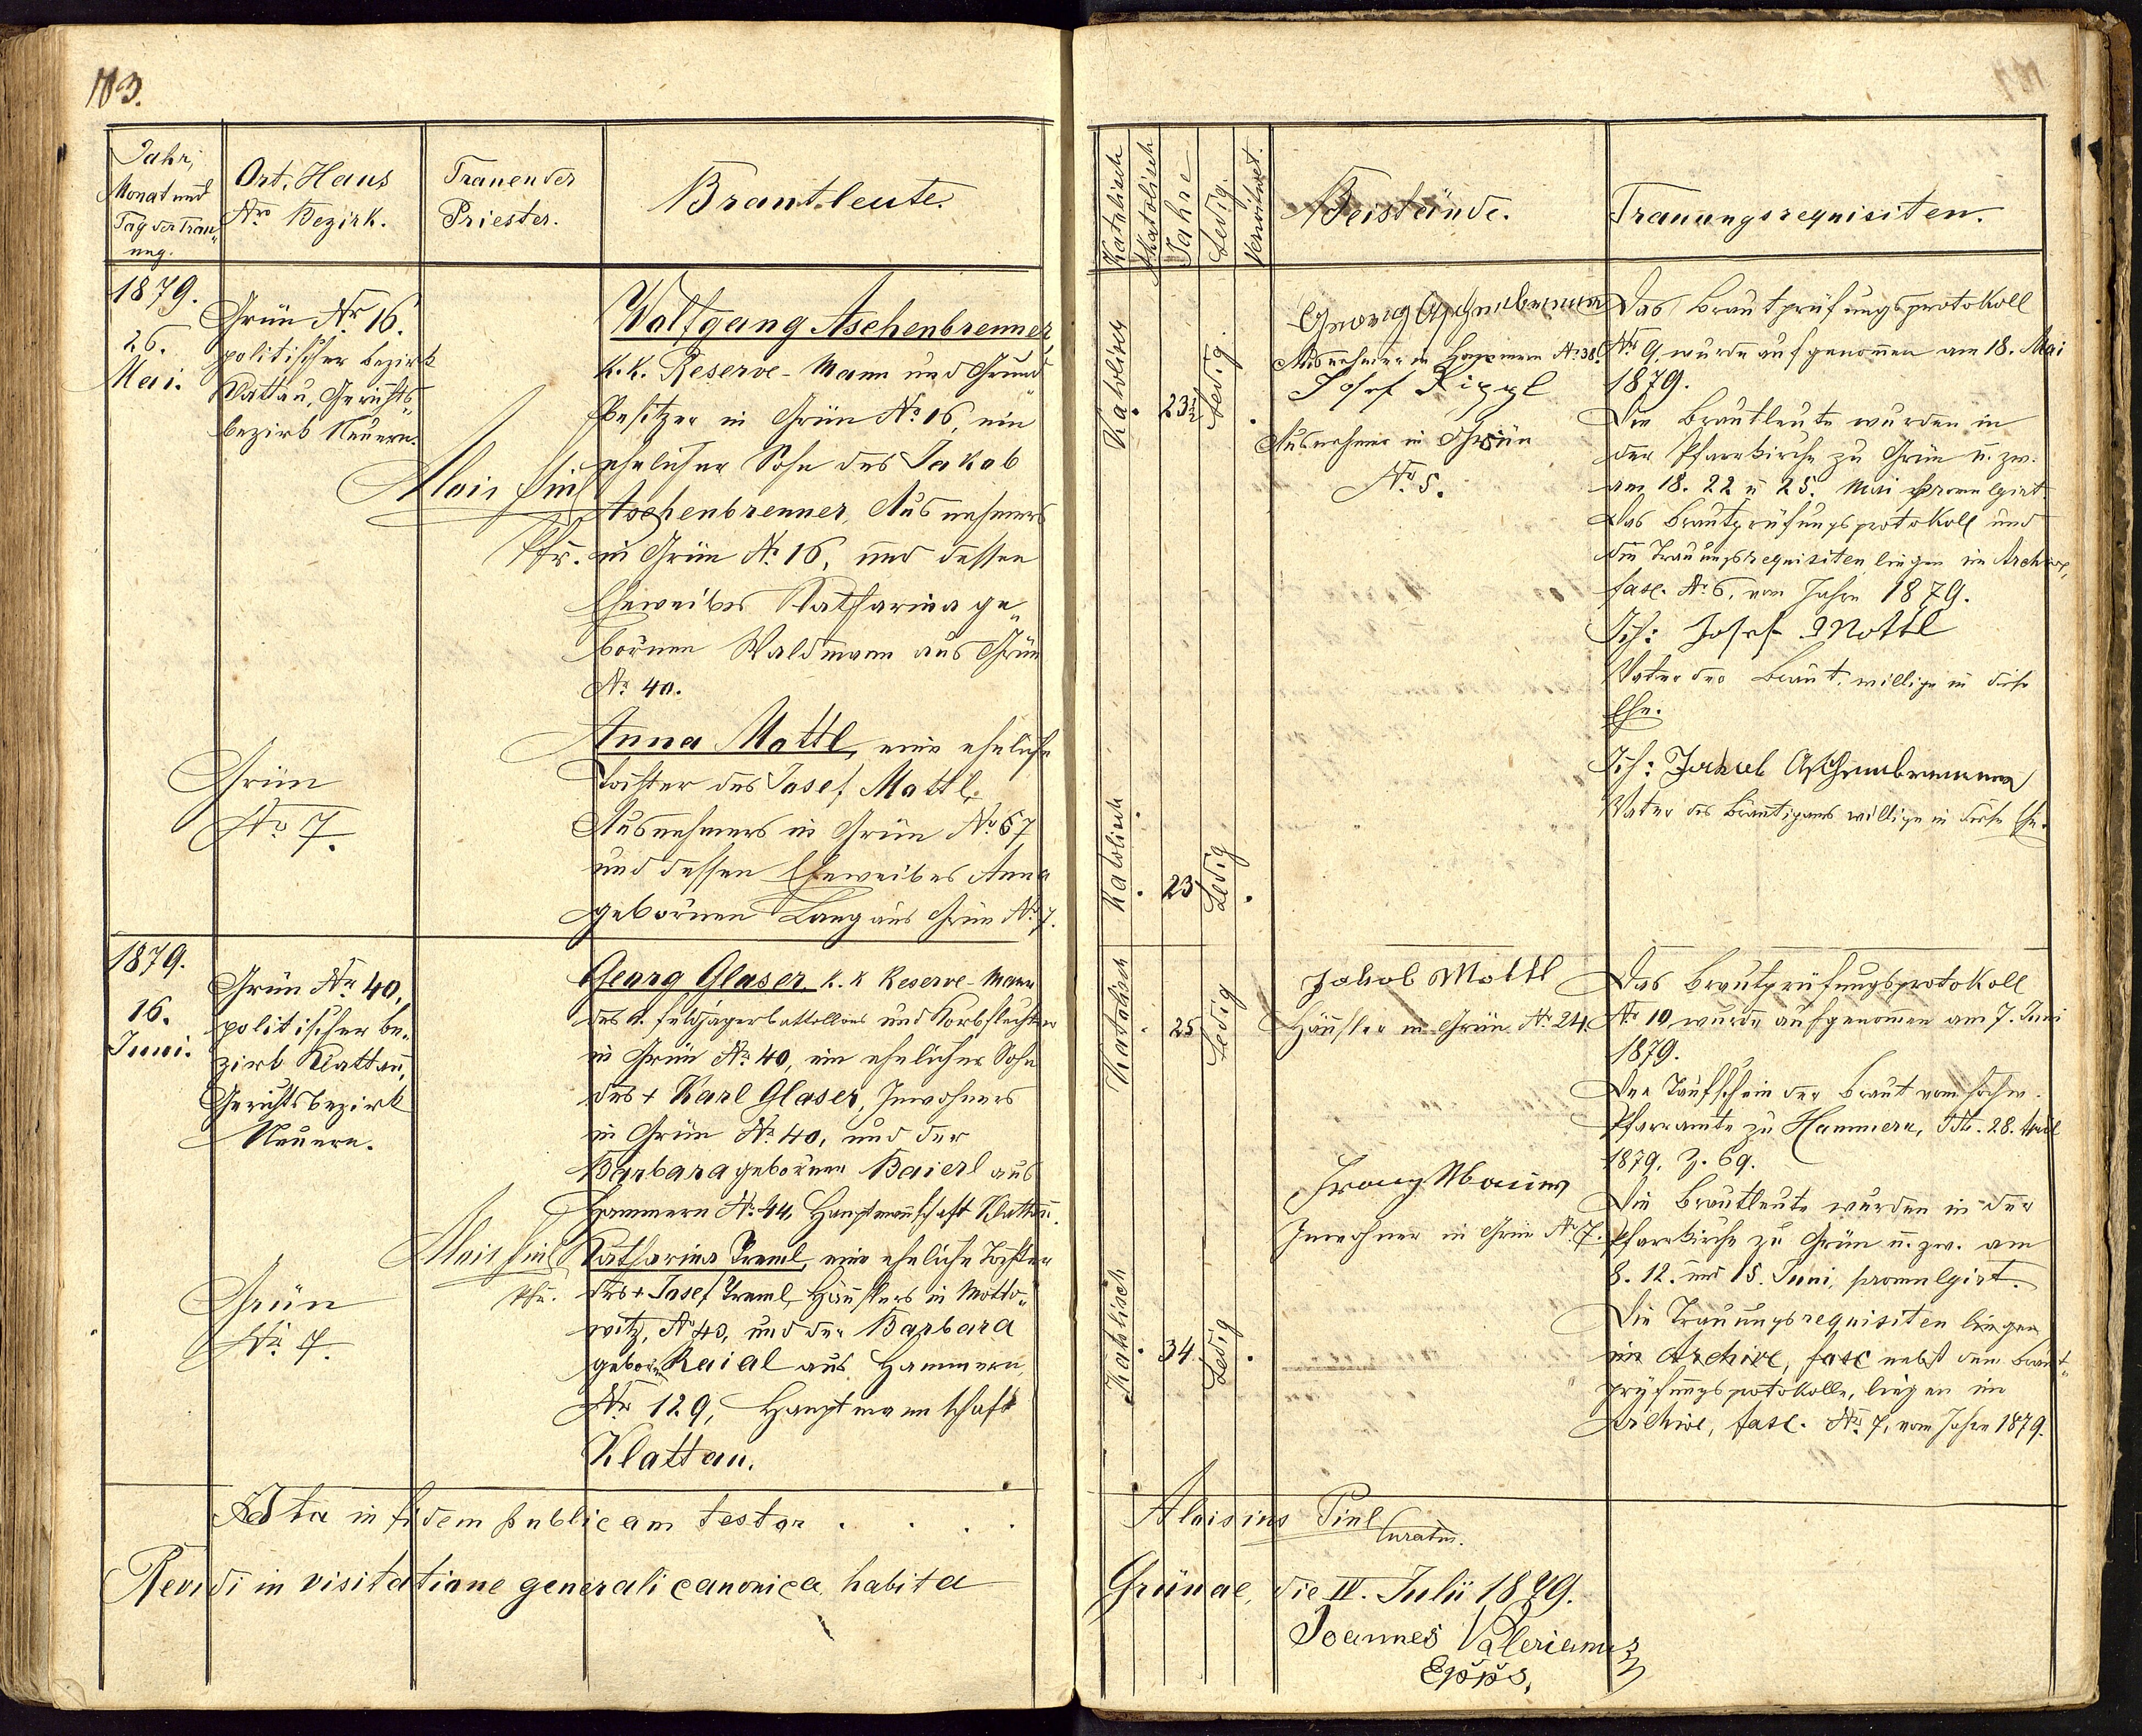 183.
Jahr,
Monat und
Tag der Trau„
ung.
Ort, Haus
Nro Bezirk.
Trauender
Priester.
Brautleute.
1879.
26.
Mai.
Grün Nr. 16.
politischer Bezirk
Klattau, Gerichts„
bezirk Neuern.
Alois Pinl
Pfr.
Wolfgang Aschenbrenner,
k. k. Reserve-Mann und Grund
besitzer in Grün No. 16, ein
ehelicher Sohn des Jakob
Aschenbrenner, Ausnehmers
in Grün No. 16, und dessen
Eheweibes Katharina ge„
bornen Waldmann aus Grün
No. 40.
Grün
No 7.
Anna Mottl, eine eheliche
Tochter des Josef Mottl,
Ausnehmers in Grün No. 67
und dessen Eheweibes Anna
gebornen Lang aus Grün No. 7.
1879.
16.
Juni.
Grün Nr. 40,
politischer Be„
zirk Klattau,
Gerichtsbezirk
Neuern.
Alois Pinl
Pfr.
Georg Glaser, k. k. Reserve-Mann
des Feldjägerbattallions und Korbflechter
in Grün No. 40, ein ehelicher Sohn
des + Karl Glaser, Inwohners
in Grün No. 40, und der
Barbara gebornen Baierl aus
Hammern No. 44, Hauptmannschaft Klattau.
Grün
No. 7.
Katharina Treml, eine eheliche Tochter
des + Josef Treml, Häuslers in Motto„
witz, No 43, und der Barbara
gebornen Raial aus Hammern,
No. 129, Hauptmannschaft
Klattau.
Acta in fidem publicam testor . . . .
Revidi in visitatione generali canonica habita
Katholisch
Akatolisch
Jahre
Ledig.
Verwitwet.
Beistände.
Trauungsrequisiten.
Katolisch
.
23½
Ledig.
.
Georg Aschenbrenner
Ausnehmer in Hammern No. 38.
Josef Zippl
Ausnehmer in Grün
No. 5.
Das Brautprüfungsprotokoll
Nr. 9, wurde aufgenommen am 18. Mai
1879.
Die Brautleute wurden in
der Pfarrkirche zu Grün u. zw.
am 18. 22 u 25. Mai promulgirt.
Das Brautprüfungsprotokoll und
die Trauungsrequisiten liegen im Archive,
fasc. No. 6, vom Jahre 1879.
Ich: Josef Mottl
Vater der Braut, willige in diese
Ehe.
Ich: Jakob Aschenbrenner
Vater des Bräutigams willige in diese Ehe.
Katolisch
.
23
Ledig
.
Katolisch
.
25
Ledig
Jakob Mottl
Häusler in Grün No. 24.
Franz Maurer
Inwohner in Grün No. 7.
Das Brautprüfungsprotokoll
No. 10 wurde aufgenommen am 7. Juni
1879.
Der Taufschein der Braut vom hochw.
Pfarramte zu Hammern, ddto. 28. April
1879, Z. 69.
Die Brautleute wurden in der
Pfarrkirche zu Grün u. zw. am
8. 12. und 15. Juni, promulgirt.
Die Trauungsrequisiten liegen
im Archive, fasc nebst dem Braut„
prüfungsprotokolle, liegen im
Archive, fasc. No. 7, vom Jahre 1879.
Katolisch
.
34
Ledig
.
Aloisius Pinl
Curatus.
Grünae, die IV. Julii 1879.
Joannes Valerianus
Eppus.